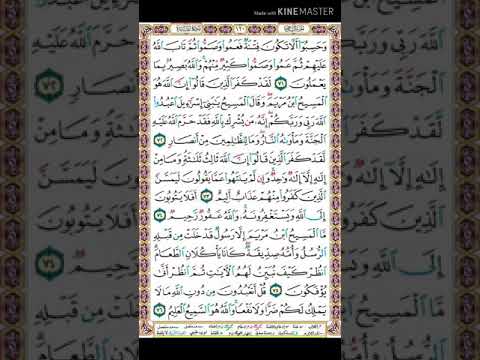 Made with KINEMASTER
١٢٠
وَحَسِبُوٓا۟ أَلَّا تَكُونَ فِتْنَةٌ فَعَمُوا۟ وَصَمُّوا۟ ثُمَّ تَابَ ٱللَّهُ
عَلَيْهِمْ ثُمَّ عَمُوا۟ وَصَمُّوا۟ كَثِيرٌ مِّنْهُمْ وَٱللَّهُ بَصِيرٌۢ بِمَا
يَعْمَلُونَ ٧١ لَقَدْ كَفَرَ ٱلَّذِينَ قَالُوٓا۟ إِنَّ ٱللَّهَ هُوَ
ٱلْمَسِيحُ ٱبْنُ مَرْيَمَ وَقَالَ ٱلْمَسِيحُ يَٰبَنِىٓ إِسْرَٰٓءِيلَ ٱعْبُدُوا۟
ٱللَّهَ رَبِّى وَرَبَّكُمْ إِنَّهُۥ مَن يُشْرِكْ بِٱللَّهِ فَقَدْ حَرَّمَ ٱللَّهُ عَلَيْهِ
ٱلْجَنَّةَ وَمَأْوَىٰهُ ٱلنَّارُ وَمَا لِلظَّٰلِمِينَ مِنْ أَنصَارٍ ٧٢
لَّقَدْ كَفَرَ ٱلَّذِينَ قَالُوٓا۟ إِنَّ ٱللَّهَ ثَالِثُ ثَلَٰثَةٍ وَمَا مِنْ
إِلَٰهٍ إِلَّآ إِلَٰهٌ وَٰحِدٌ وَإِن لَّمْ يَنتَهُوا۟ عَمَّا يَقُولُونَ لَيَمَسَّنَّ
ٱلَّذِينَ كَفَرُوا۟ مِنْهُمْ عَذَابٌ أَلِيمٌ ٧٣ أَفَلَا يَتُوبُونَ
إِلَى ٱللَّهِ وَيَسْتَغْفِرُونَهُۥ وَٱللَّهُ غَفُورٌ رَّحِيمٌ ٧٤
مَّا ٱلْمَسِيحُ ٱبْنُ مَرْيَمَ إِلَّا رَسُولٌ قَدْ خَلَتْ مِن قَبْلِهِ
ٱلرُّسُلُ وَأُمُّهُۥ صِدِّيقَةٌ كَانَا يَأْكُلَانِ ٱلطَّعَامَ
ٱنظُرْ كَيْفَ نُبَيِّنُ لَهُمُ ٱلْءَايَٰتِ ثُمَّ ٱنظُرْ أَنَّىٰ
يُؤْفَكُونَ ٧٥ قُلْ أَتَعْبُدُونَ مِن دُونِ ٱللَّهِ مَا لَا
يَمْلِكُ لَكُمْ ضَرًّا وَلَا نَفْعًا وَٱللَّهُ هُوَ ٱلسَّمِيعُ ٱلْعَلِيمُ ٧٦